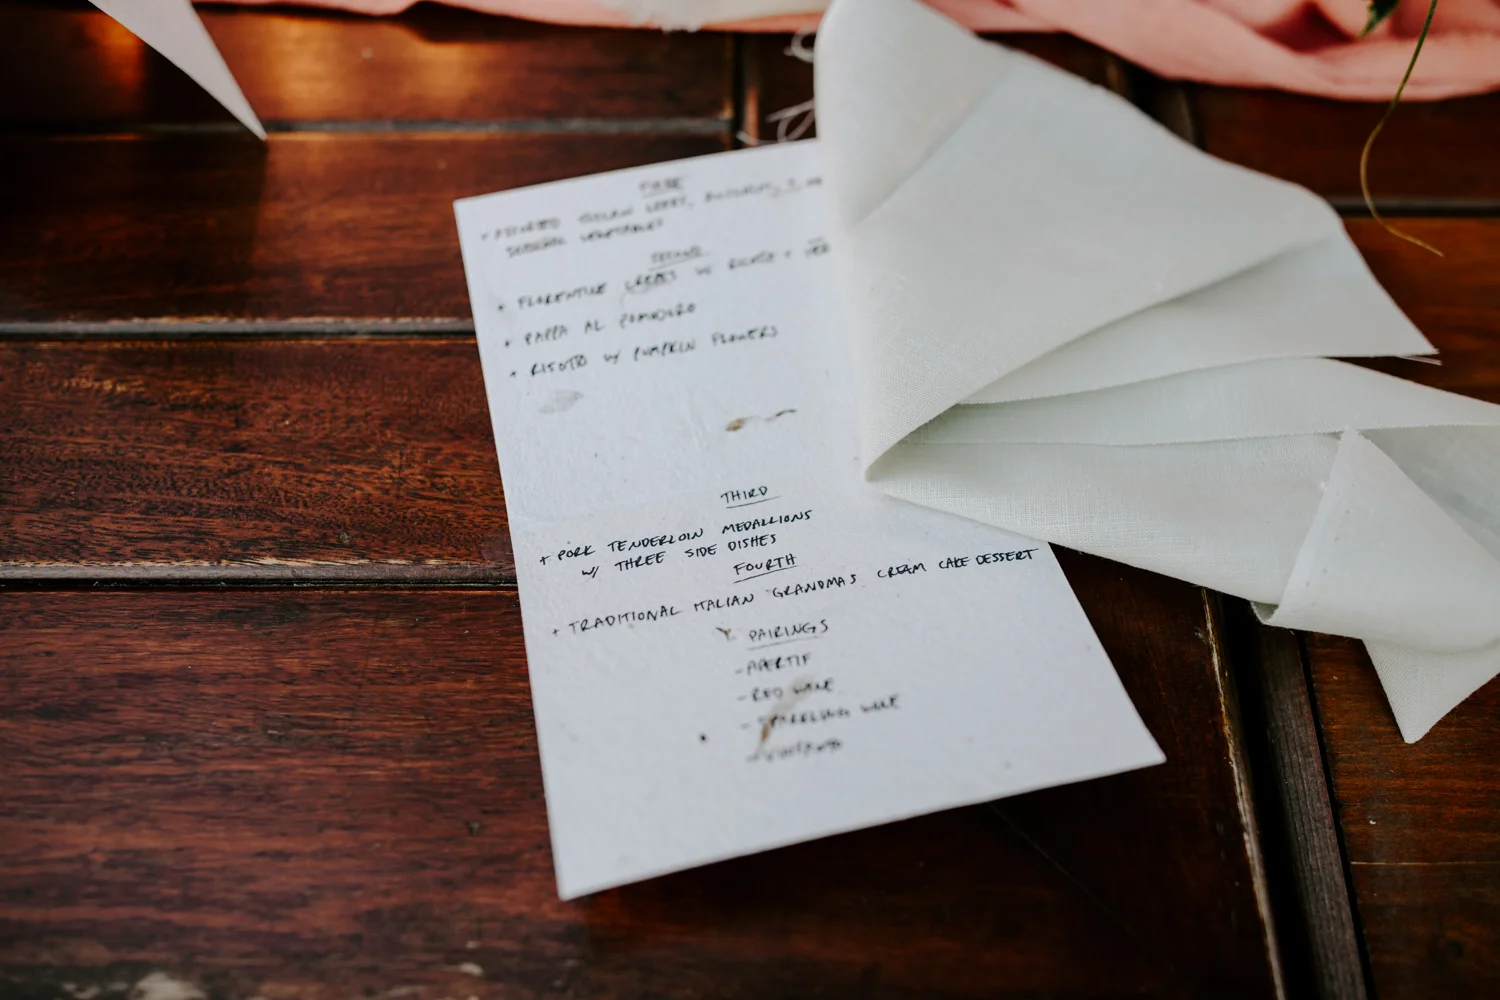 FIRST
+ ASSORTED ITALIAN
SEASONAL VEGETABLES
SECOND
+ FLORENTINE CREPES W/ RICOTTA +
+ PAPPA AL POMODORO
+ RISOTTO W/ PUMPKIN FLOWERS
THIRD
+ PORK TENDERLOIN MEDALLIONS
W/ THREE SIDE DISHES
FOURTH
+ TRADITIONAL ITALIAN "GRANDMAS CREAM CAKE DESSERT
PAIRINGS
- APERTIF
- RED WINE
- SPARKLING WINE